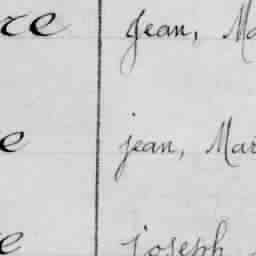 re Jean, Ma
e jean, Mar
e joseph